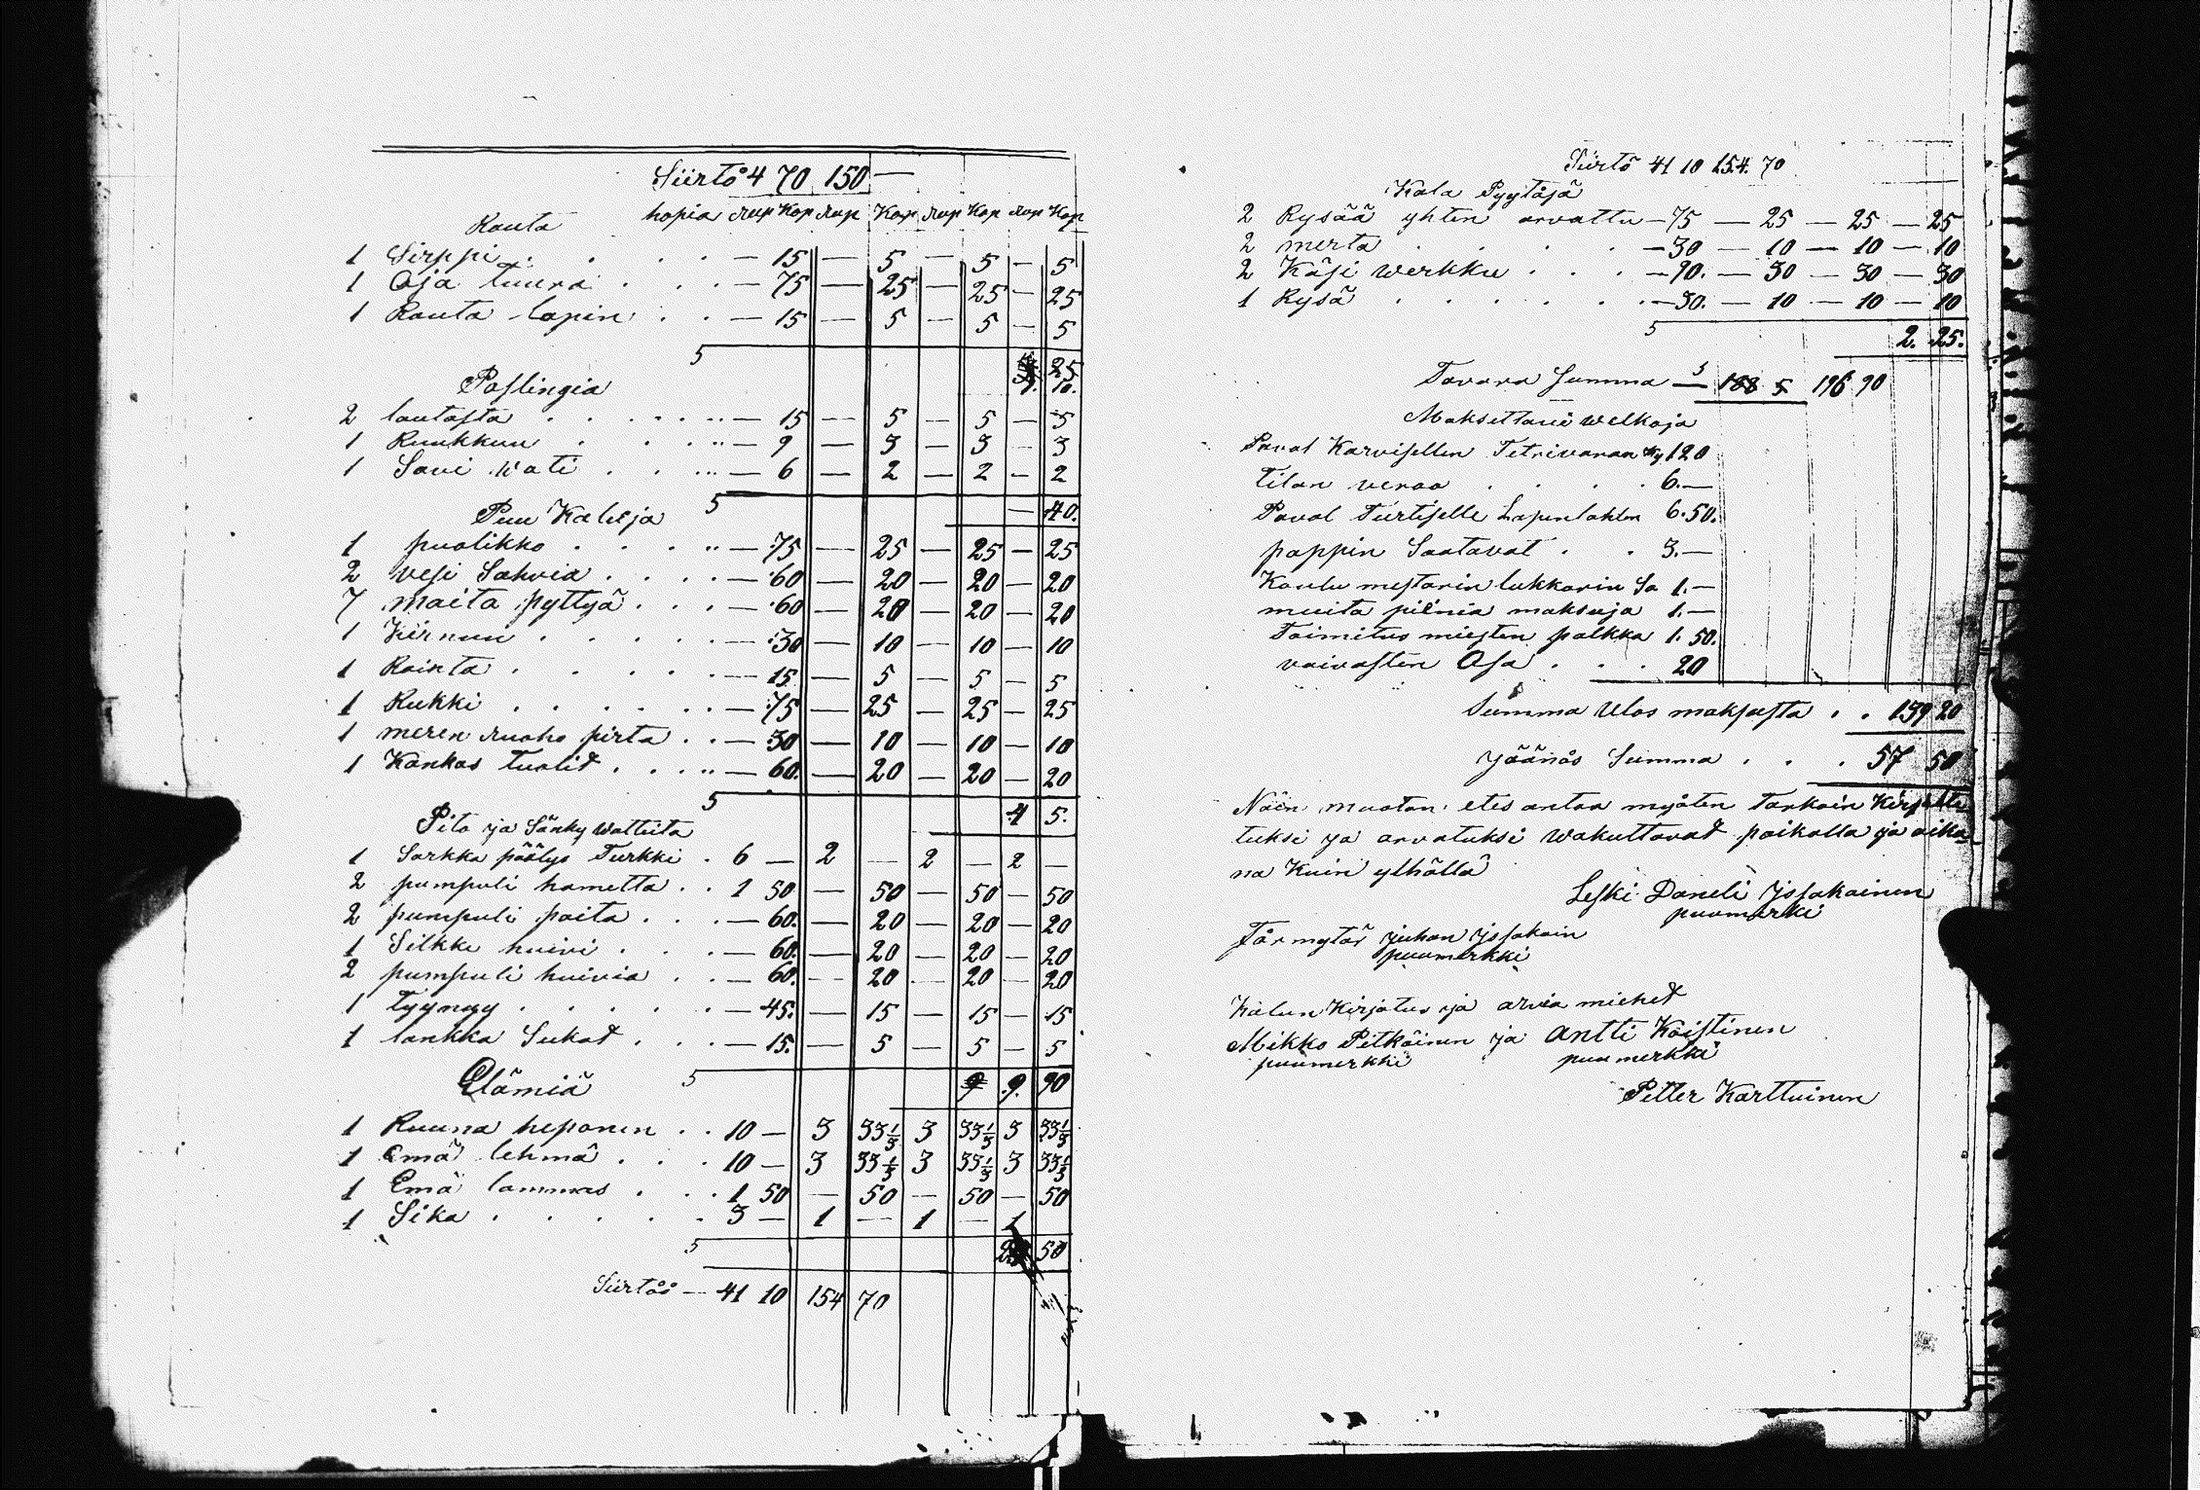 Siirto 4 70 150 —
hopia rup Kop rup Kop rup Kop rup Kop
Rauta
1 Sirppi . . . . — 15 — 5 — 5 — 5
1 Oja tuura . . . — 75 — 25 — 25 — 25
1 Rauta lapin . . — 15 — 5 — 5 — 5
5 25
1. 10.
Poslingia
2 lautasta . . . . — 15 — 5 — 5 — 5
1 Ruukkuu . . . — 9 — 3 — 3 — 3
1 Savi Wati . . . — 6 — 2 — 2 — 2
5 — 40.
Puu Kaluja
1 puolikko . . . . — 75 — 25 — 25 — 25
2 vesi Sahvia . . . . — 60 — 20 — 20 — 20
7 maito pyttyä . . . — 60 — 20 — 20 — 20
1 Kirnuu . . . . . — 30 — 10 — 10 — 10
1 Rainta . . . . . — 15 — 5 — 5 — 5
1 Rukki . . . . . . — 75 — 25 — 25 — 25
1 meren ruoho pirta . . — 30 — 10 — 10 — 10
1 Kankas tuolit . . . . — 60. — 20 — 20 — 20
5 4 5.
Pito ja Sänky Watteita
1 Sarkka päälys Turkki . 6 — 2 — 2 — 2 —
2 pumpuli hametta . . 1 50 — 50 — 50 — 50
2 pumpuli paita . . . — 60. — 20 — 20 — 20
1 Silkki huivi . . . — 60. — 20 — 20 — 20
2 pumpuli huivia . . — 60. — 20 — 20 — 20
1 tyynyy . . . . . — 45. — 15 — 15 — 15
1 lankka Sukat . . . — 15. — 5 — 5 — 5
5 9 9. 90
Elämiä
1 Ruuna heponen . . 10 — 3 33 1/3 3 33 1/3 3 33 1/3
1 Emä lehmä . . . 10 — 3 33 1/3 3 33 1/3 3 33 1/3
1 Emä lammas . . . 1 50 — 50 — 50 — 50
1 Sika . . . . . 3 — 1 — 1 — 1
5 50
Siirtöö — 41 10 154 70
Siirtö 41 10 154. 70
Kala Pyytöjä
2 Rysää yhten arvattu — 75 — 25 — 25 — 25
2 merta . . . . — 30 — 10 — 10 — 10
2 Käsi werkku . . . — 90. — 30 — 30 — 30
1 Rysä . . . . . . — 30. — 10 — 10 — 10
5 2. 25.
Tavara Summa 5 188 5 196 90
Maksettavia welkoja
Paval Karvisellen Tetrivaaran 120
tilan veroa . . . . 6. —
Paval Tiirtiselle Lapinlahlen 6. 50.
pappin Saatavat . . 3. —
Koulu mestarin lukkarin Sa 1. —
muita pieniä maksuja 1. —
Toimitus miesten palkka 1. 50.
vaivasten Osa . . . 20
Summa Ulos maksusta . . 139 20
Jäänös Summa . . . 57 50
Näin muoton etes antaa myöten tarkoin Kirjoite
tuksi ja arvatuksi Wakuttavat paikalla ja aika=
na Kuin ylhällä
Leski Daneli Issakainen
puumerki
Färmytär Juhan Issakain
puumerkki
Kalun Kirjotus ja arvia miehet
Mikko Pitkäinen ja Antti Koistinen
puumerkki puumerkki
Petter Karttuinen